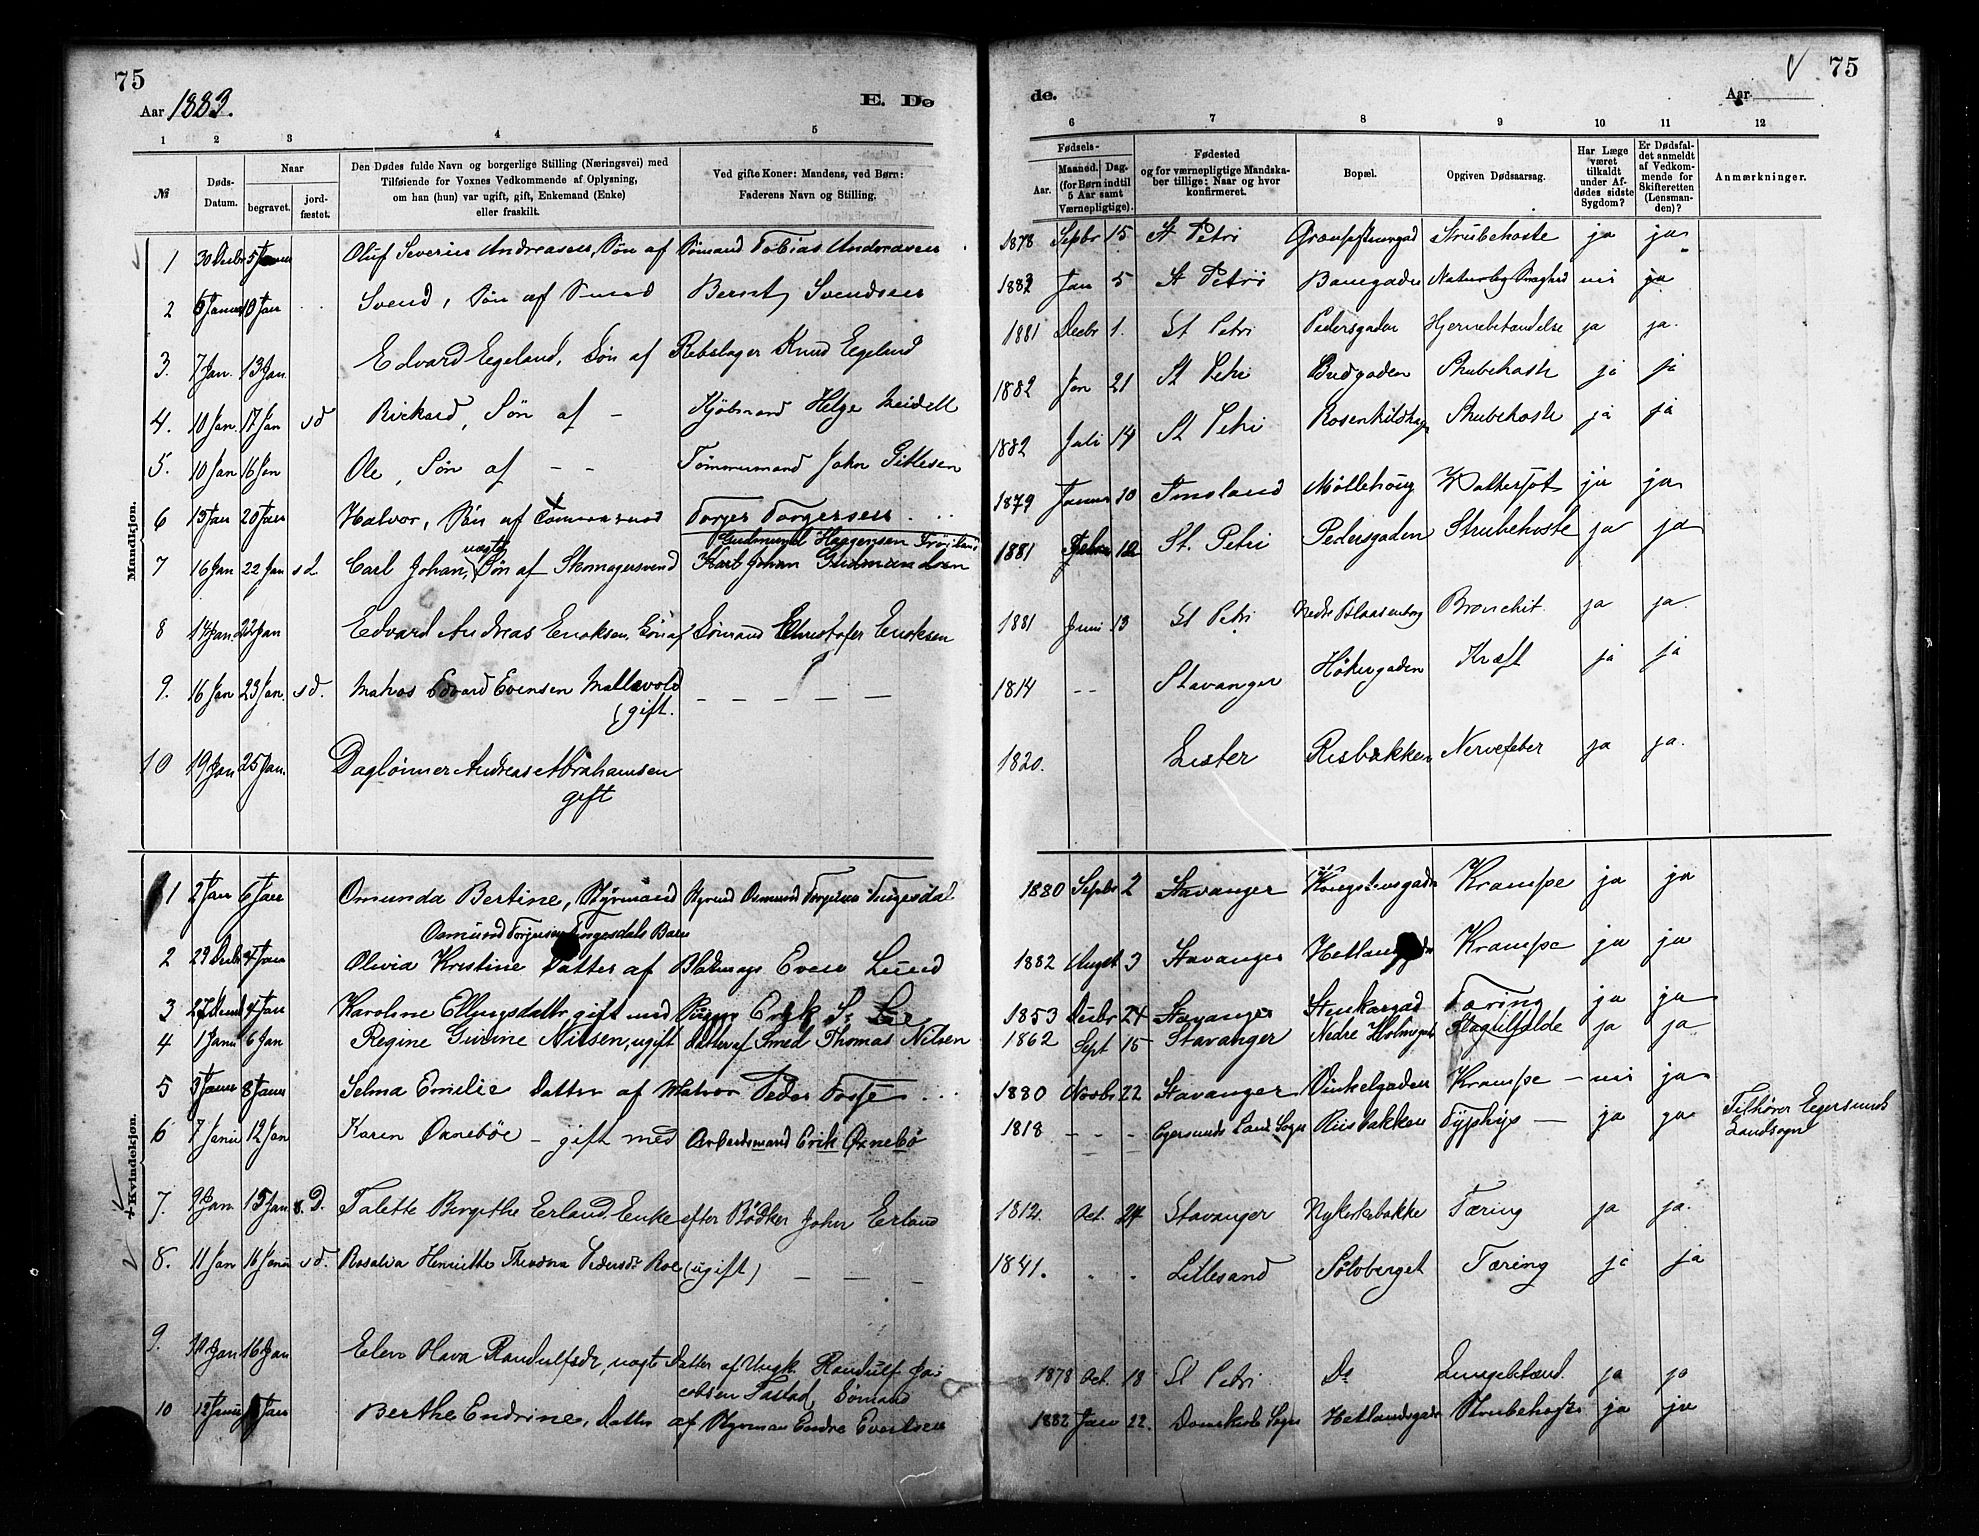 75
Aar 1883.
E. De
1 2 3 4 5
№
Døds-Datum.
Naar
begravet.
jord-fæstet.
Den Dødes fulde Navn og borgerlige Stilling (Næringsvei) med
Tilføiende for Voxnes Vedkommende af Oplysning,
om han (hun) var ugift, gift, Enkemand (Enke)
eller fraskilt.
Ved gifte Koner: Mandens, ved Børn:
Faderens Navn og Stilling.
Mandkjøn.
1 30 Decbr 5 Januar Oluf Severin Andreasen, Søn af Sømand Tobias Andreasen
2 6 Januar 10 Jan Svend, Søn af Smed Bernt Svendsen
3. 7 Jan. 13 Jan. Edvard Egeland, Søn af Rebslager Knud Egeland
4. 10 Jan. 17 Jan sd Rickard, Søn af - Kjøbmand Helge Meidell
5. 10 Jan 16 Jan Ole, Søn af - - Tømmermand John Gitlesen
6 15 Jan 20 Jan Halvor, Søn af Tømmermand Torger Torgersen
Gudmund Haagensen Frøiland
7 16 Jan 22 Jan sd Carl Johan, uægte Søn af Skomagersvend Karl Johan Gudmundsen
8 17 Jan 22 Jan Edvard Andreas Enoksen, Søn af Sømand Christofer Enoksen
9. 16 Jan 23 Jan. sd. Matros Edvard Evensen Mallevold - - - - -
(gift.
10 19 Jan 25 Jan. Daglønner Andreas Abrahamsen
gift
Kvindekjøn.
1 2 Jan 6 Jan Omunda Bertine, Styrmand Styrmd Osmund Torgersen Tengesdal
Osmund Torgersen Tengesdals Barn
2 29 Decbr 4 Jan Olivia Kristine Datter af Blikmager Even Lund
3 27 Decmb 4 Jan Karoline Ellingsdatter gift med Erik S. Lee
4 1 Janu 6 Jan Regine Gurine Nilsen, ugift Datter af Smed Thomas Nilsen
5 3 Januar 8 Januar Selma Emilie Datter af Matros Peder Tosse
6 7 Janu 12 Jan Karen Øxnebøe - gift med Arbeidsmand Erik Øxnebø
7. 9 Jan 15 Jan s.D. Talette Bergithe Erland, Enke efter Bødker John Erland
8. 11 Jan 16 Janu sd. Rosalia Henriette Theodora Pedersdr Roe (ugift) - - -
9. 10 Jan 16 Jan Elen Olava Randulfsdr, uægte Datter af Ungk. Randulf Ja-
cobsen Tastad, Sømand
10 12 Janu Jan Berthe Endrine, Datter af Styrman Endre Evertsen
75
de.
Aar
6 7 8 9 10 11 12
Fødsels-
Aar.
Maaned.
Dag.
(for Børn indtil
5 Aar samt
Værnepligtige).
Fødested
og for værnepligtige Mandska-
ber tillige: Naar og hvor
konfirmeret.
Bopæl.
Opgiven Dødsaarsag.
Har Læge
været
tilkaldt
under Af-
dødes sidste
Sygdom?
Er Dødsfal-
det anmeldt
af Vedkom-
mende for
Skifteretten
(Lensman-
den)?
Anmærkninger.
1878 Sepbr 15 St Petri Strubehoste ja ja
1883 Jan 5 St Petri Banegaden Naturlig Svaghed nei ja
1881 Decbr 1. St Petri Pedersgaden Hjernebetændelse ja ja.
1882 Jan 21 St Petri Brudgaden Strubehoste ja ja
1882 Juli 14 St Petri Strubehoste ja ja
1879 Januar 10 Imsland Møllehoug Vattersot ja ja
1881 12 St. Petri Pedersgaden Strubehoste ja ja
1881 Juni 13 St Petri Nedre Blaasenborg Bronchit. ja ja.
1814 - - Stavanger Høkergaden Kræft ja ja
1820. Lister Risbakken Nervefeber ja ja.
1880 Sepbr 2 Stavanger Kongstensgaden Krampe ja ja
1882 August 3 Stavanger Krampe ja ja
1853 Decbr 24 Stavanger Stenkargad Tæring ja ja
1862 Sept 15 Stavanger Nedre Holmegade Slagtilfælde ja ja
1880 Novbr 22 Stavanger Vinkelgaden Krampe - nei ja
1818 - - - Egersunds Land Sogn Risbakken Typhys - ja ja Tilhører Egersunds
Landsogn
1812. Oct. 24 Stavanger Nykirkebakke Tæring ja ja.
1841. Lillesand Sølvberget Tæring ja ja
1878 Oct. 18 St Petri Do Lungebetænd. ja ja
1882 Jan 22. Domkirke Sogn Hetlandsgade Strubehoste ja ja